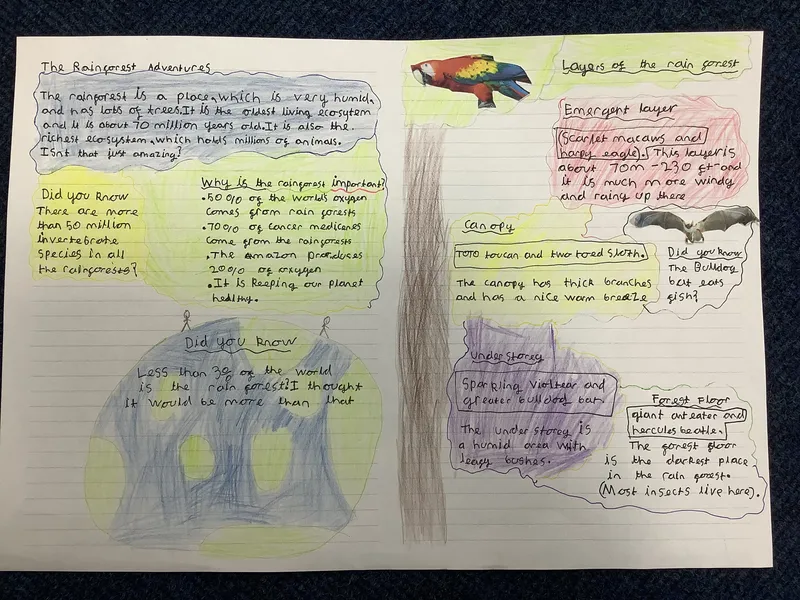 The Rainforest Adventures
The rainforest is a place, which is very humid,
and has lots of trees. It is the oldest living ecosystem
and it is about 70 million years old. It is also the
richest ecosystem, which holds millions of animals.
Isnt that just amazing?
Did you know
There are more
than 50 million
invertebrate
species in all
the rainforests?
Why is the rainforest important?
.50% of the world's oxygen
comes from rain forests
.70% of cancer medicenes
come from the rainforests
.The amazon produces
20% of oxygen
.It is keeping our planet
healthy.
Did you know
Less than 3% of the world
is the rain forest? I thought
it would be more than that
Layers of the rain forest
Emergent layer
(Scarlet macaws and
harpy eagle). This layer is
about 70m - 230 ft and
it is much more windy
and rainy up there
Canopy
TOTO toucan and two toed sloth.
The canopy has thick branches
and has a nice warm breeze
Did you know
The Bulldog
bat eats
fish?
Understorey
Sparkling violtear and
greater bulldog bat.
The understorey is
a humid area with
leafy bushes.
Forest floor
giant ant eater and
hercules beatle.
The forest floor
is the darkest place
in the rain forest.
(Most insects live here).